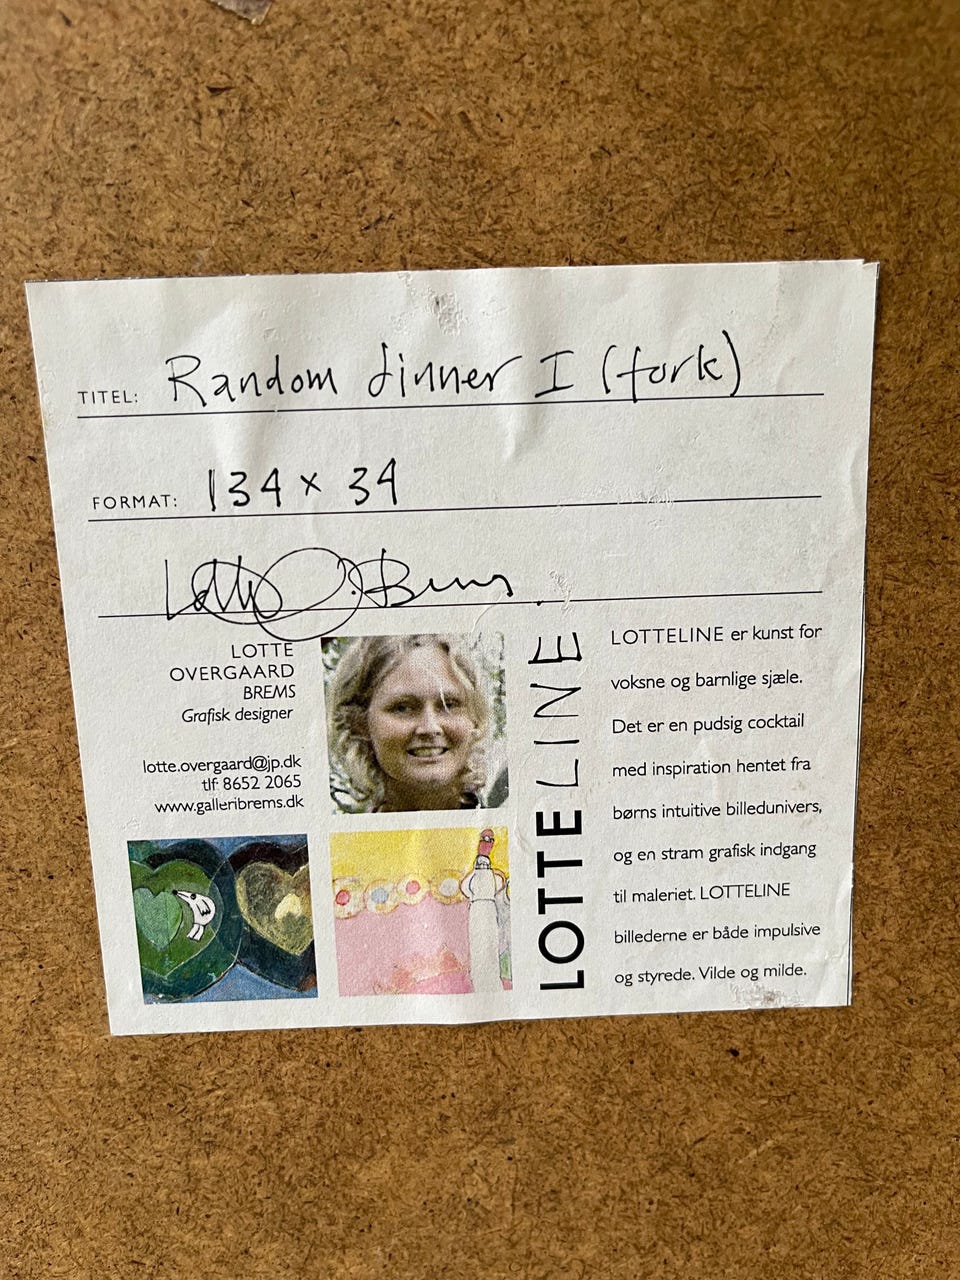 TITEL: Random dinner I (fork)
FORMAT: 134 x 34
Lotte O. Brems
LOTTE
OVERGAARD
BREMS
Grafisk designer
lotte.overgaard@jp.dk
tlf: 8652 2065
www.galleribrems.dk
LOTTELINE
LOTTELINE er kunst for
voksne og barnlige sjæle.
Det er en pudsig cocktail
med inspiration hentet fra
børns intuitive billedunivers,
og en stram grafisk indgang
til maleriet. LOTTELINE
billederne er både impulsive
og styrede. Vilde og milde.